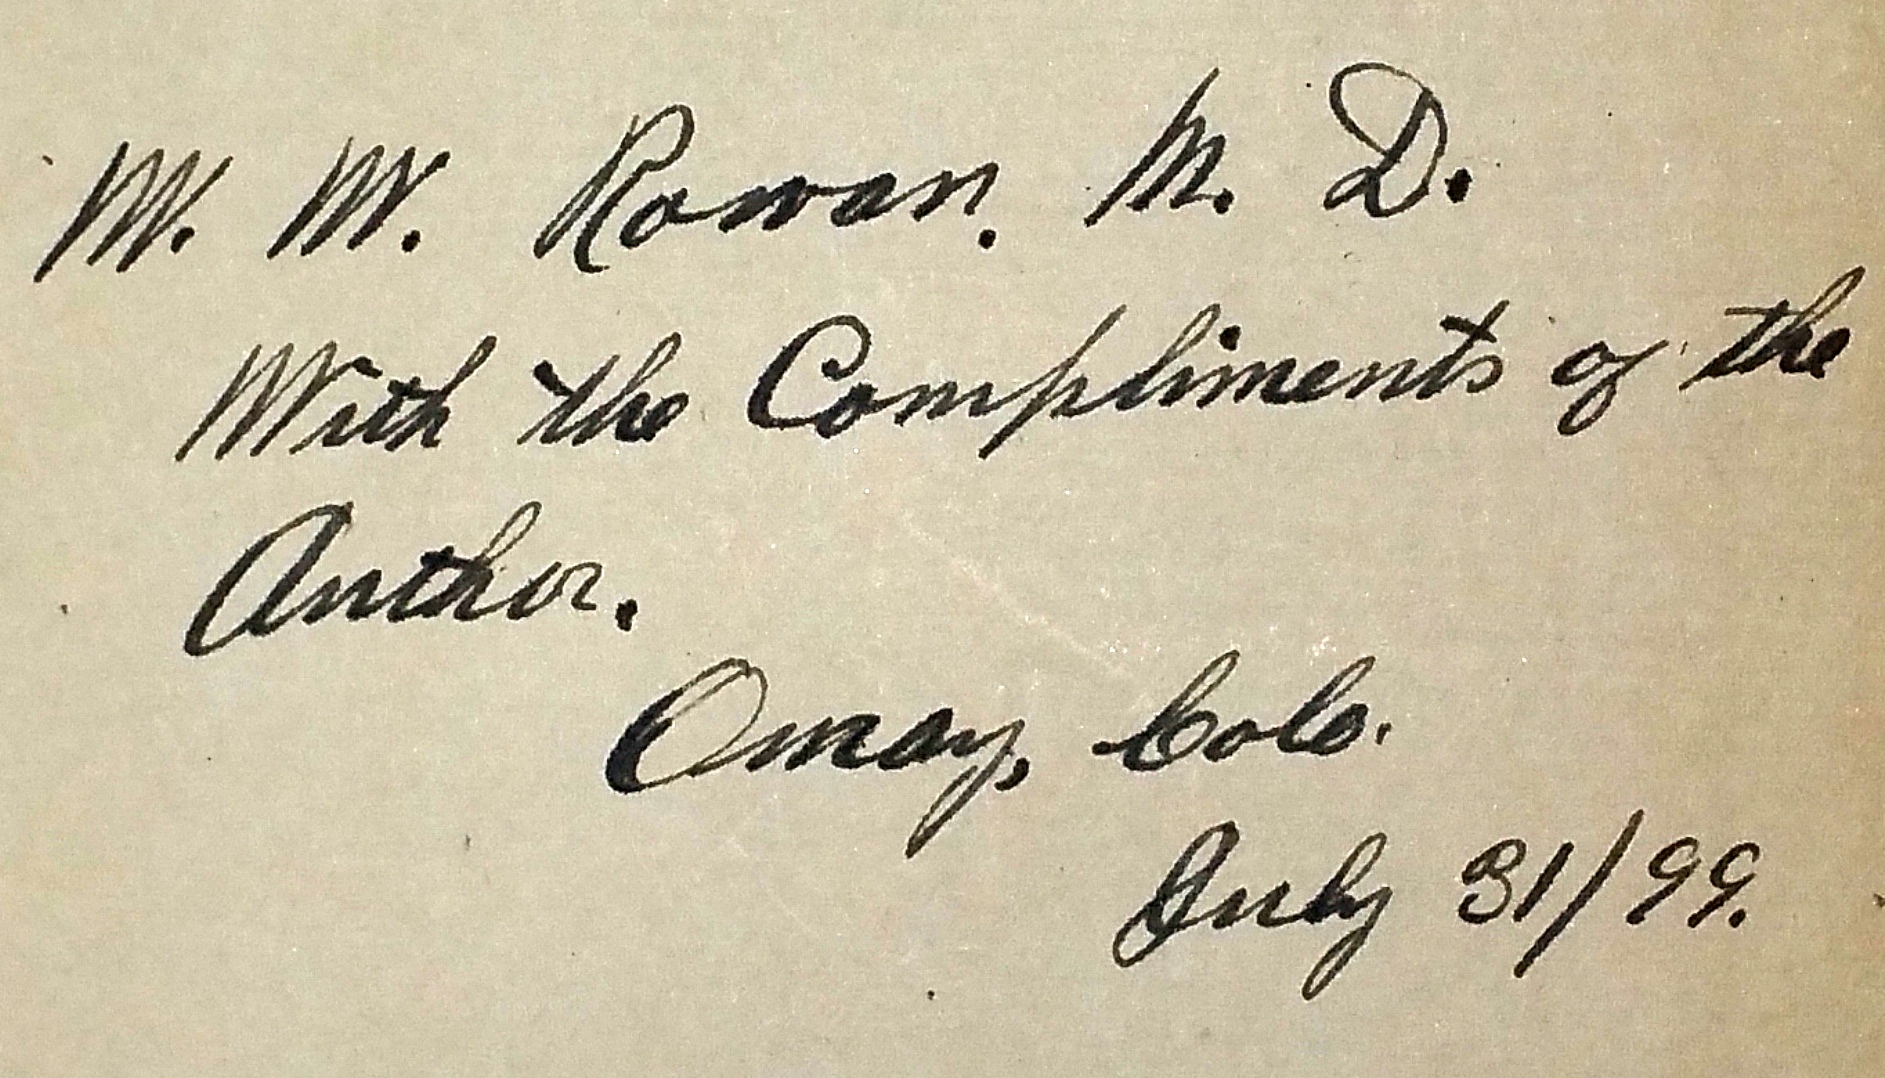 W. W. Rowan. M. D.
With the Compliments of the
Author.
Ouray, Colo.
July 31/99.